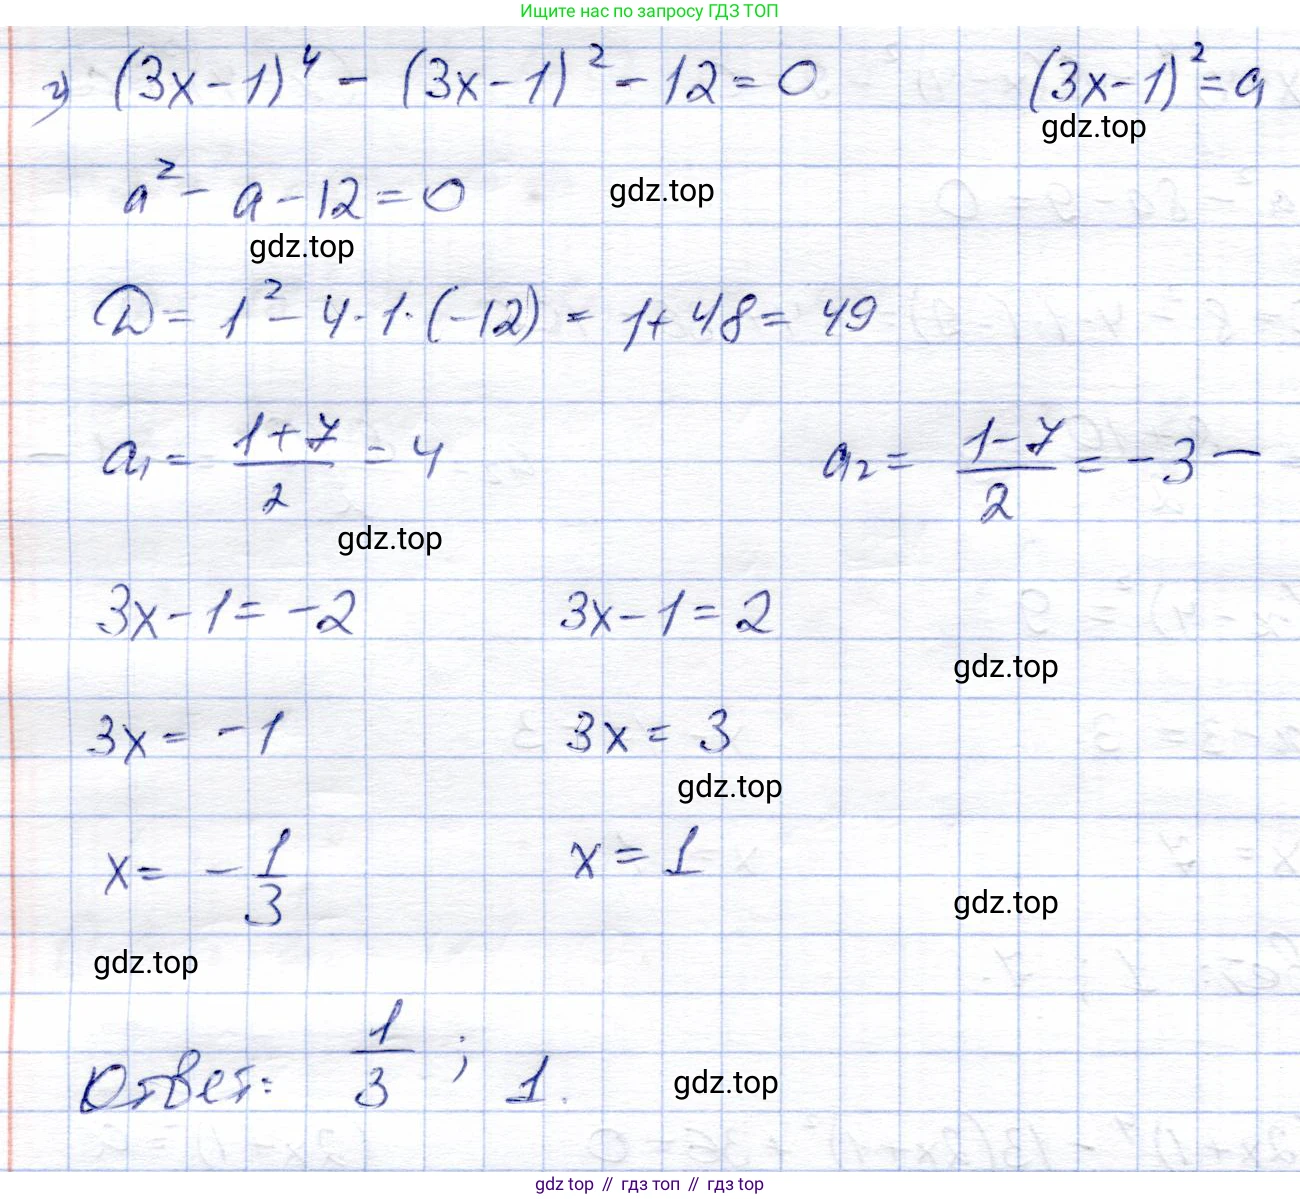 Ищите нас по запросу ГДЗ ТОП
г) (3x-1)⁴ - (3x-1)² - 12 = 0 (3x-1)² = a
gdz.top
a² - a - 12 = 0 gdz.top
gdz.top
D = 1² - 4·1·(-12) = 1+48 = 49
a₁ = (1+7)/2 = 4 a₂ = (1-7)/2 = -3 –
gdz.top
3x-1 = -2 3x-1 = 2
gdz.top
3x = -1 3x = 3
gdz.top
x = -1/3 x = 1
gdz.top
gdz.top
Ответ: 1/3 ; 1.
gdz.top
gdz top // гдз топ // гдз top